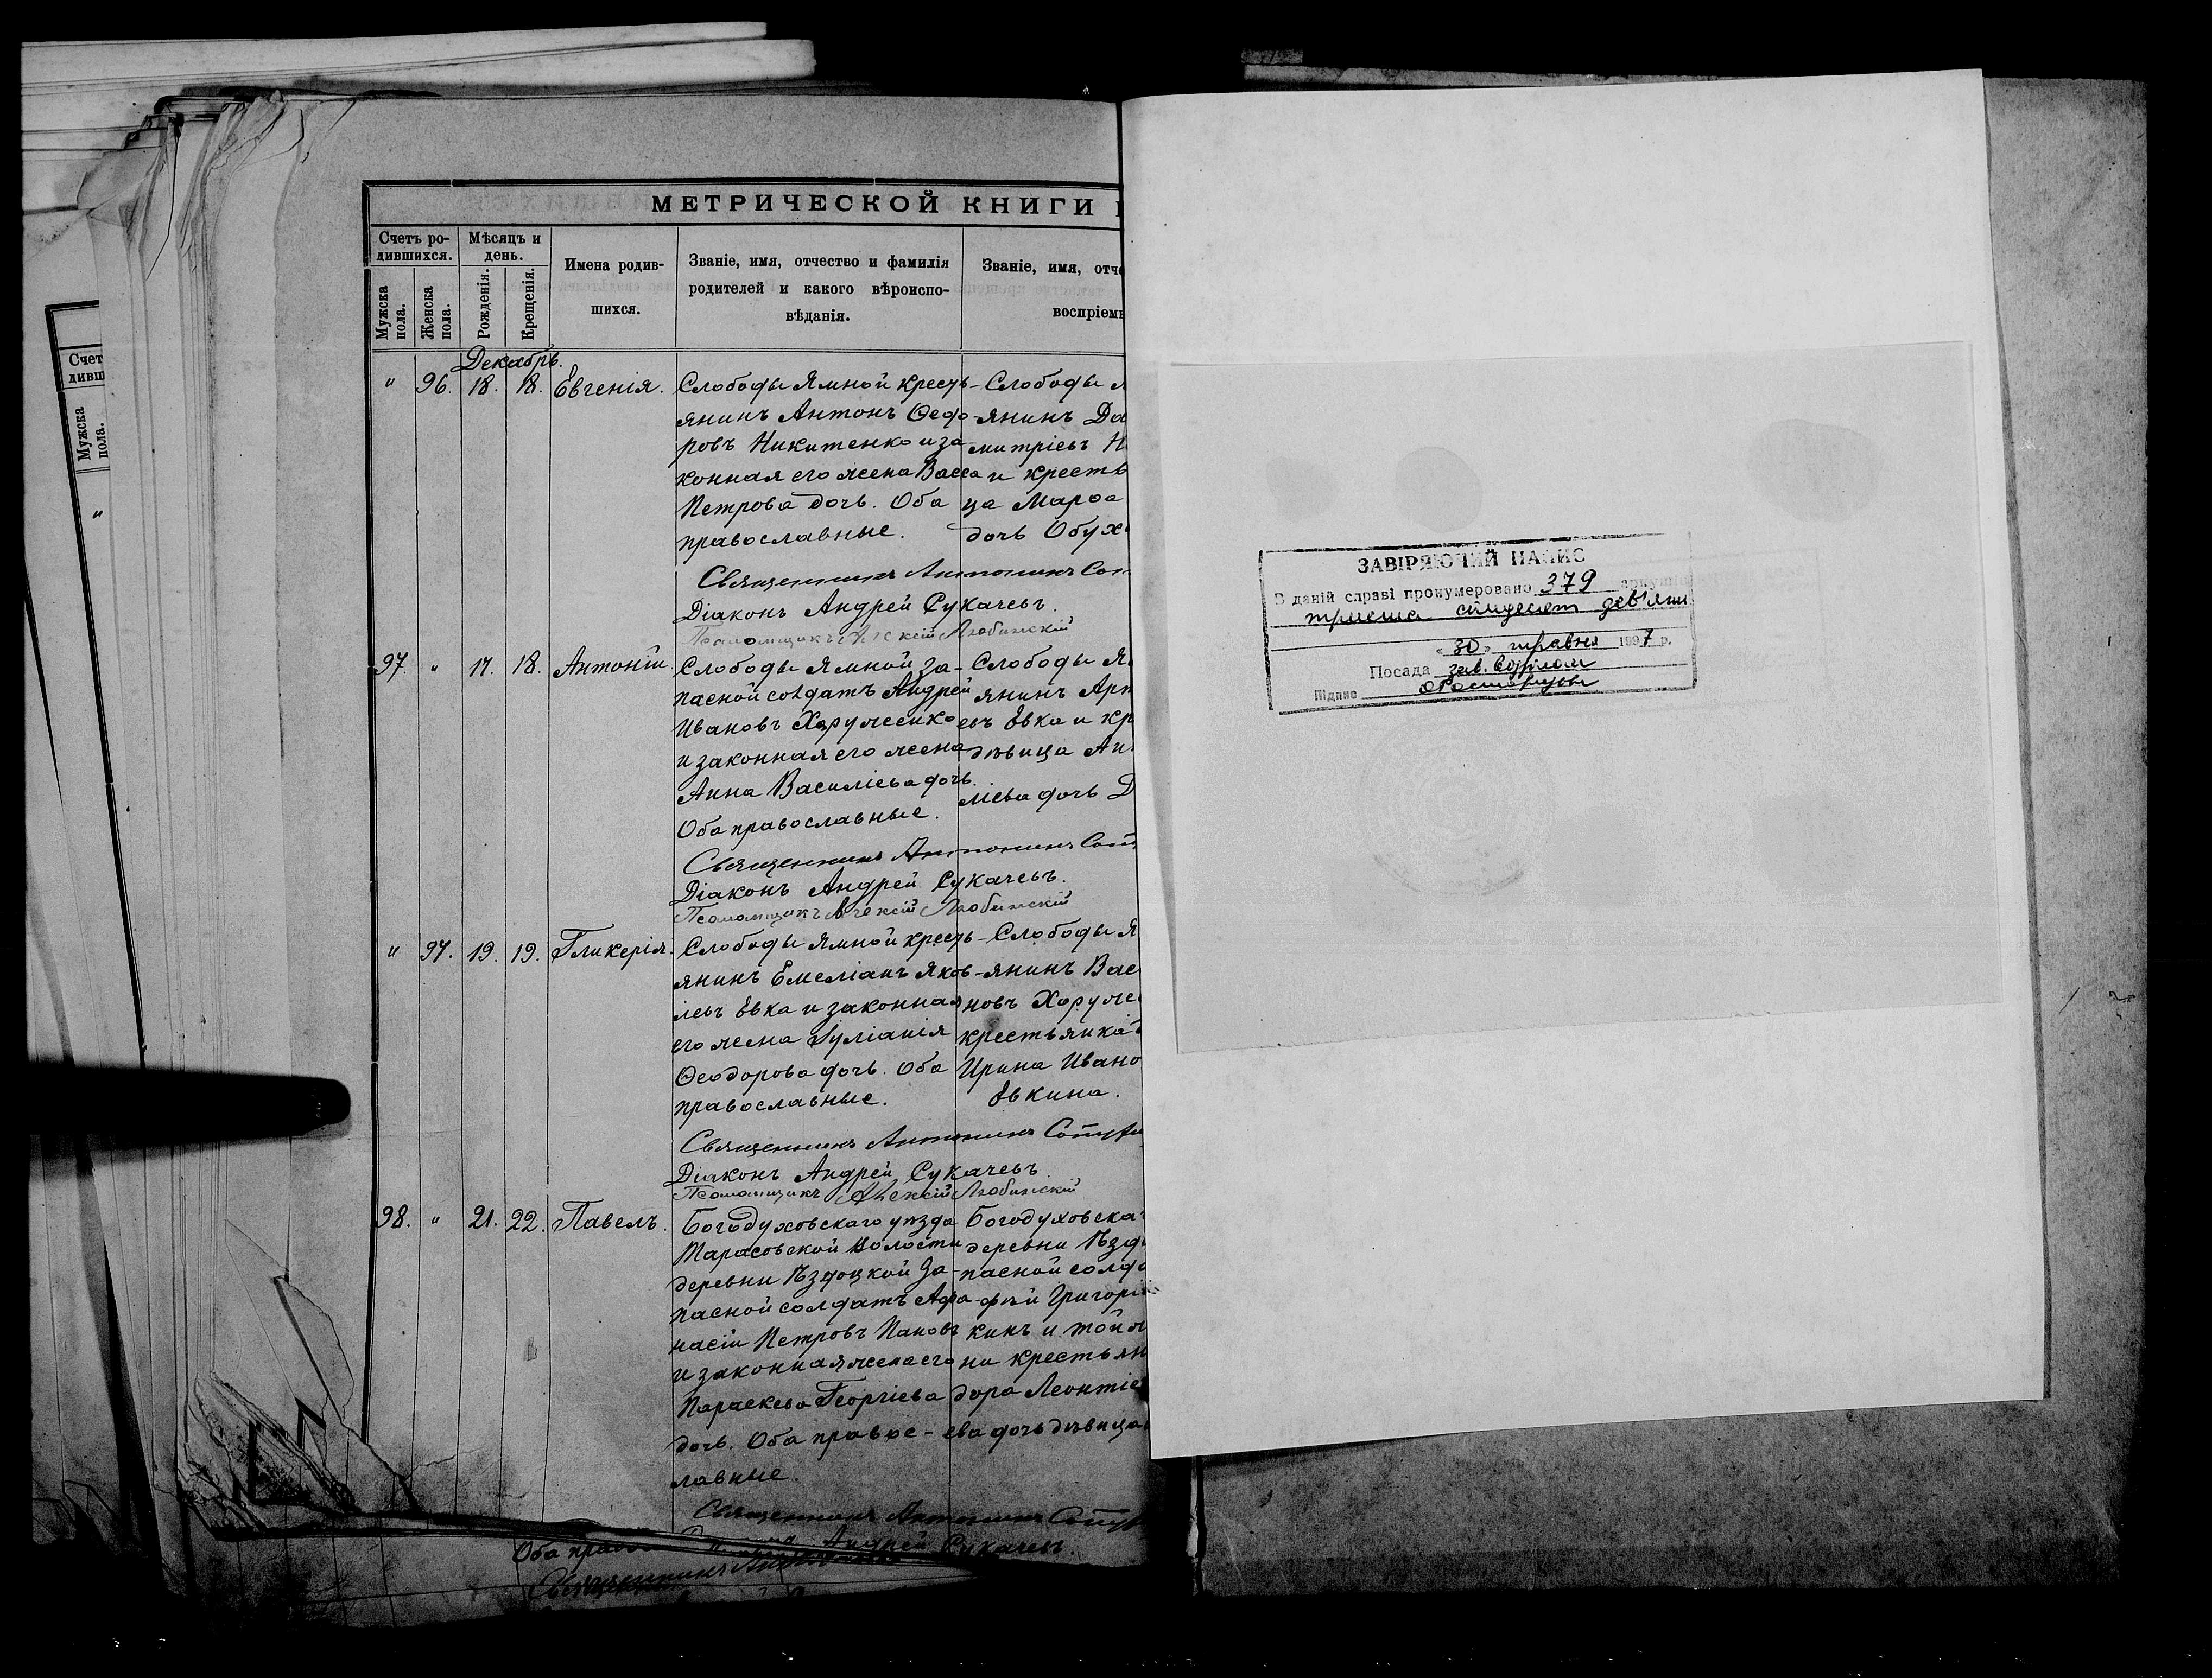 МЕТРИЧЕСКОЙ КНИГИ
Счетъ ро-
дившихся.
Мѣсяцъ и
день.
Мужска
пола.
Женска
пола.
Рожденія.
Крещенія.
Имена родив-
шихся.
Званіе, имя, отчество и фамилія
родителей и какого вѣроиспо-
вѣданія.
Званіе, имя, отче
воспріемн
Счет
дивш
Мужска
пола.
"
Декабрь.
" 96. 18. 18. Евгенія.
Слободы Ямной кресть-
янинъ Антонъ Ѳедо-
ровъ Никитенко и за-
конная его жена Васса
Петрова дочь. Оба
православные.
Слободы Я
янинъ Да
митріевъ Н
и кресть
ца Марѳа
дочь Обух
Священникъ Антонинъ Соп
Діаконъ Андрей Сукачевъ.
Псаломщикъ Алексій Любинскій
97. " 17. 18. Антоній.
Слободы Ямной за-
пасной солдатъ Андрей
Ивановъ Харуженко
и законная его жена
Анна Василіева дочь.
Оба православные.
Слободы Я
янинъ Арт
евъ Евка и кр
дѣвица Ан
ліева дочь Д
Священникъ Антонинъ Соп
Діаконъ Андрей Сукачевъ.
Псаломщикъ Алексій Любинскій
" 97. 19. 19. Гликерія.
Слободы Ямной кресть-
янинъ Емеліанъ Яков-
левъ Евка и законная
его жена Іуліанія
Ѳеодорова дочь. Оба
православные.
Слободы Я
янинъ Вас
новъ Харуже
крестьянка
Ирина Ивано
Евкина.
Священникъ Антонинъ Сопу
Діаконъ Андрей Сукачевъ
Псаломщикъ Алексій Любинскій
98. " 21. 22. Павелъ.
Богодуховскаго уѣзда
Тарасовской волости
деревни Ѣздоцкой за-
пасной солдатъ Аѳа-
насій Петровъ Пановъ
и законная жена его
Параскева Георгіева
дочь. Оба правос-
лавные.
Богодуховска
деревни Ѣздо
пасной солда
ѳѣй Григорі
кинъ и той ж
ни крестьян
дора Леонтіе
ева дочь дѣвица
Священникъ Антонинъ Сопу
Андрей Сукачевъ.
Оба прав
Священникъ
ЗАВІРЯЮЧИЙ НАПИС
В даній справі пронумеровано 379 аркушів
триста сімдесят дев'ять
«30» травня 1997 р.
Посада зав. відділом
Підпис